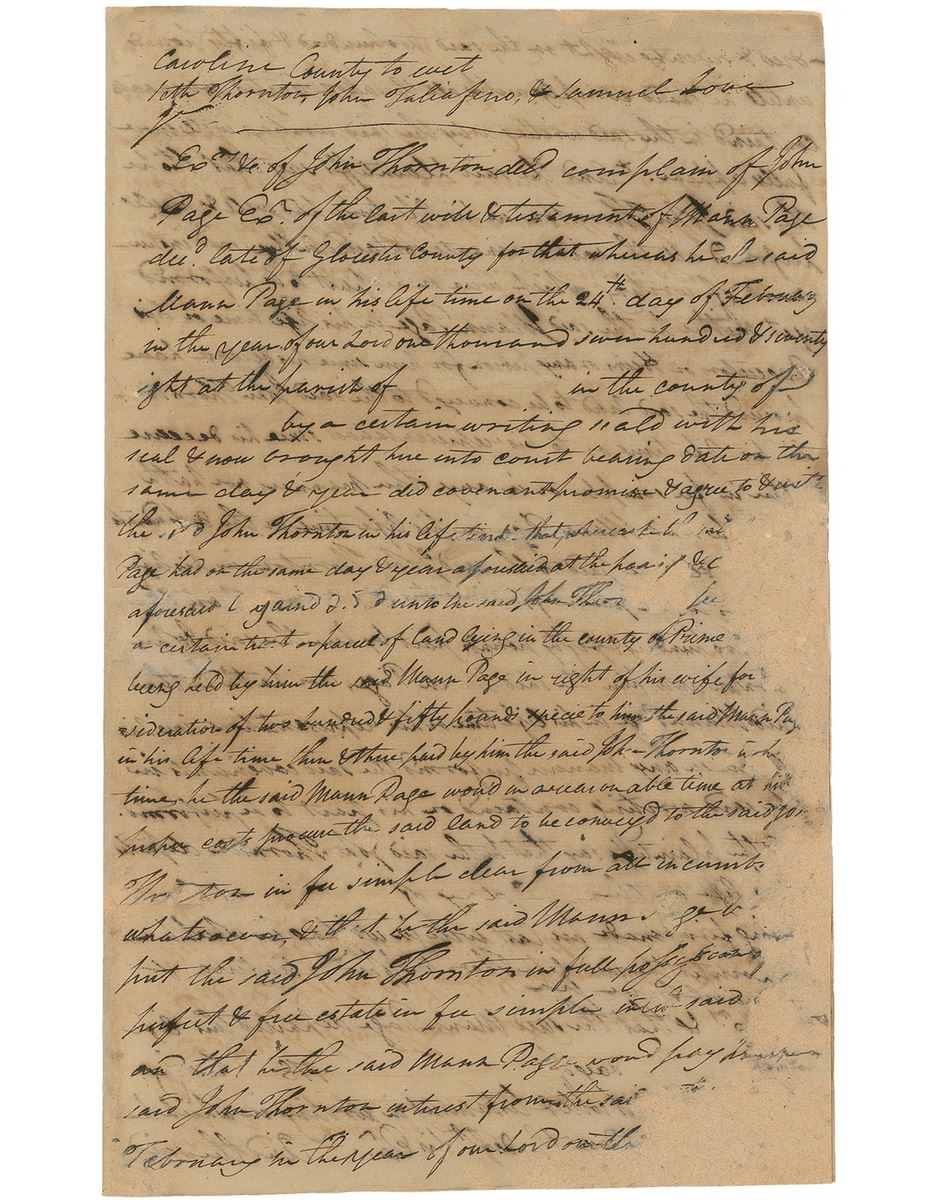 Caroline County to wit
Seth Thornton, John Taliaferro, & Samuel
Exrs &c of John Thornton decd complain of John
Page Exr of the last will & testament of Mann Page
decd. late of Gloucester County for that whereas he said
Mann Page in his life time on the 24th. day of February
in the year of our Lord one thousand seven hundred & seventy
ight at the parish of in the county of
by a certain writing seald with his
seal & now brought here into court bearing date on the
same day & year did covenant promise & agree to & with
the sd John Thornton in his life time that whereas he
Page had on the same day & year aforesaid at the &c
aforesaid unto the said John
a certain tract or parcel of land lying in the county of Prince
being held by him the said Mann Page in right of his wife for
sideration of two hundred & fifty pounds specie to him the said Mann Pag
in his life time then & there paid by him the said John Thornton in
time, he the said Mann Page would in a reasonable time at his
proper costs procure the said land to be conveyed to the said Jo
Thornton in fee simple clear from all incumb
whatsoever, & that he the said Mann
put the said John Thornton in full possession
perfect & free estate in fee simple in the said
and that he the said Mann Page woud pay
said John Thornton interest from the sai
February in the year of our Lord on th